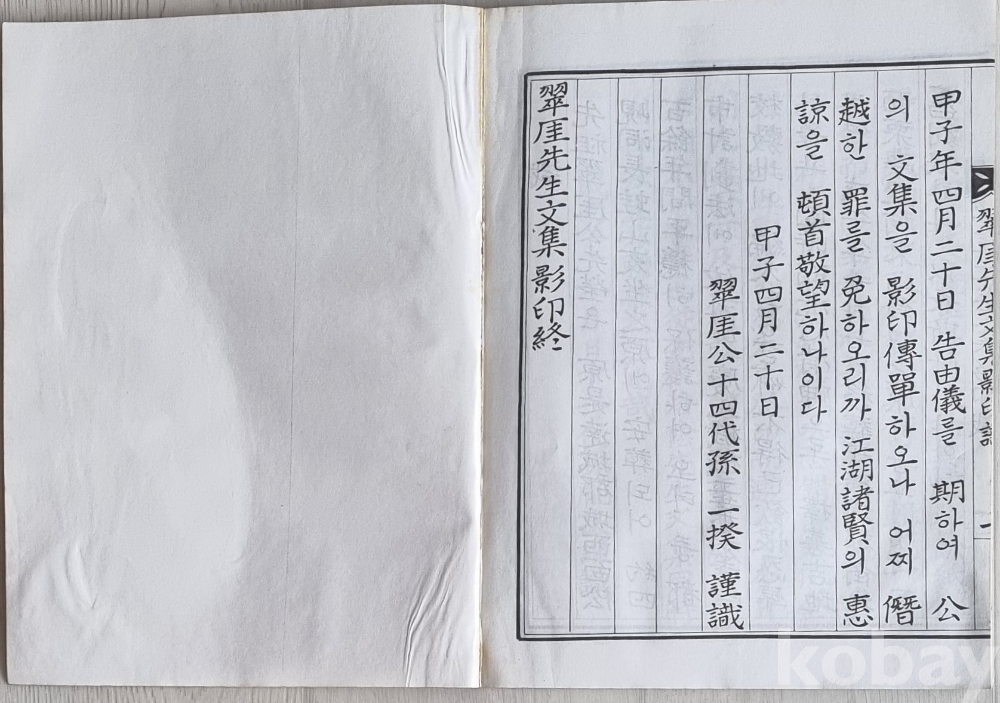 甲子年 四月 二十日 告由儀를 期하여 公
의 文集을 影印傳單하오나 어찌 僭
越한 罪를 免하오리까 江湖諸賢의 惠
諒을 頓首敬望하나이다
甲子四月二十日
翠厓公十四代孫 一揆 謹識
翠厓先生文集影印終
翠厓先生文集影印
kobay